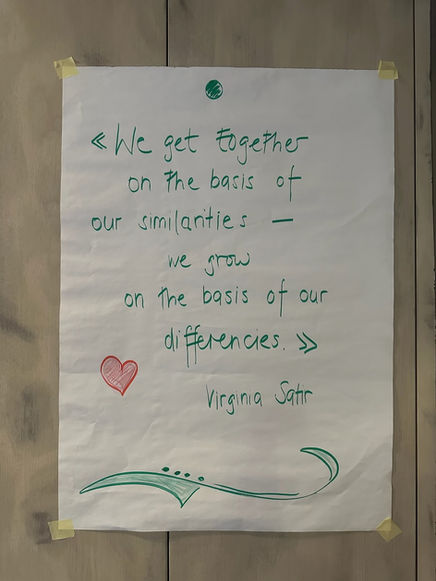 « We get together
on the basis of
our similarities —
we grow
on the basis of our
differencies. »
Virginia Satir